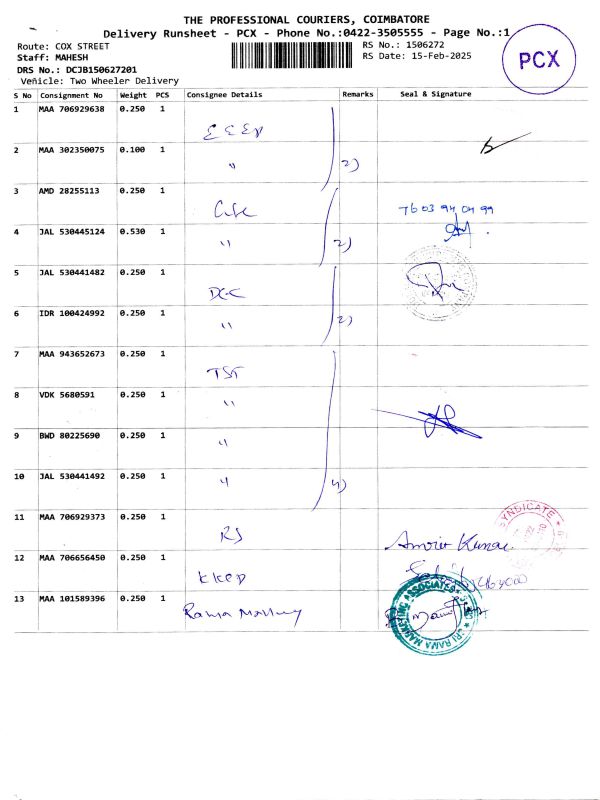 THE PROFESSIONAL COURIERS, COIMBATORE
Delivery Runsheet - PCX - Phone No.:0422-3505555 - Page No.:1
Route: COX STREET
RS No.: 1506272
Staff: MAHESH
RS Date: 15-Feb-2025
DRS No.: DCJB150627201
Vehicle: Two Wheeler Delivery
PCX
S No Consignment No Weight PCS Consignee Details Remarks Seal & Signature
1 MAA 706929638 0.250 1
2 MAA 302350075 0.100 1 " 2)
3 AMD 28255113 0.250 1 7603940499
4 JAL 530445124 0.530 1 " 2)
5 JAL 530441482 0.250 1
6 IDR 100424992 0.250 1 " 2)
7 MAA 943652673 0.250 1 TST
8 VDK 5680591 0.250 1 "
9 BWD 80225690 0.250 1 "
10 JAL 530441492 0.250 1 " 4)
11 MAA 706929373 0.250 1 RS
SYNDICATE
12 MAA 706656450 0.250 1
13 MAA 101589396 0.250 1 Rama
SRI RAMA MARKETING ASSOCIATES